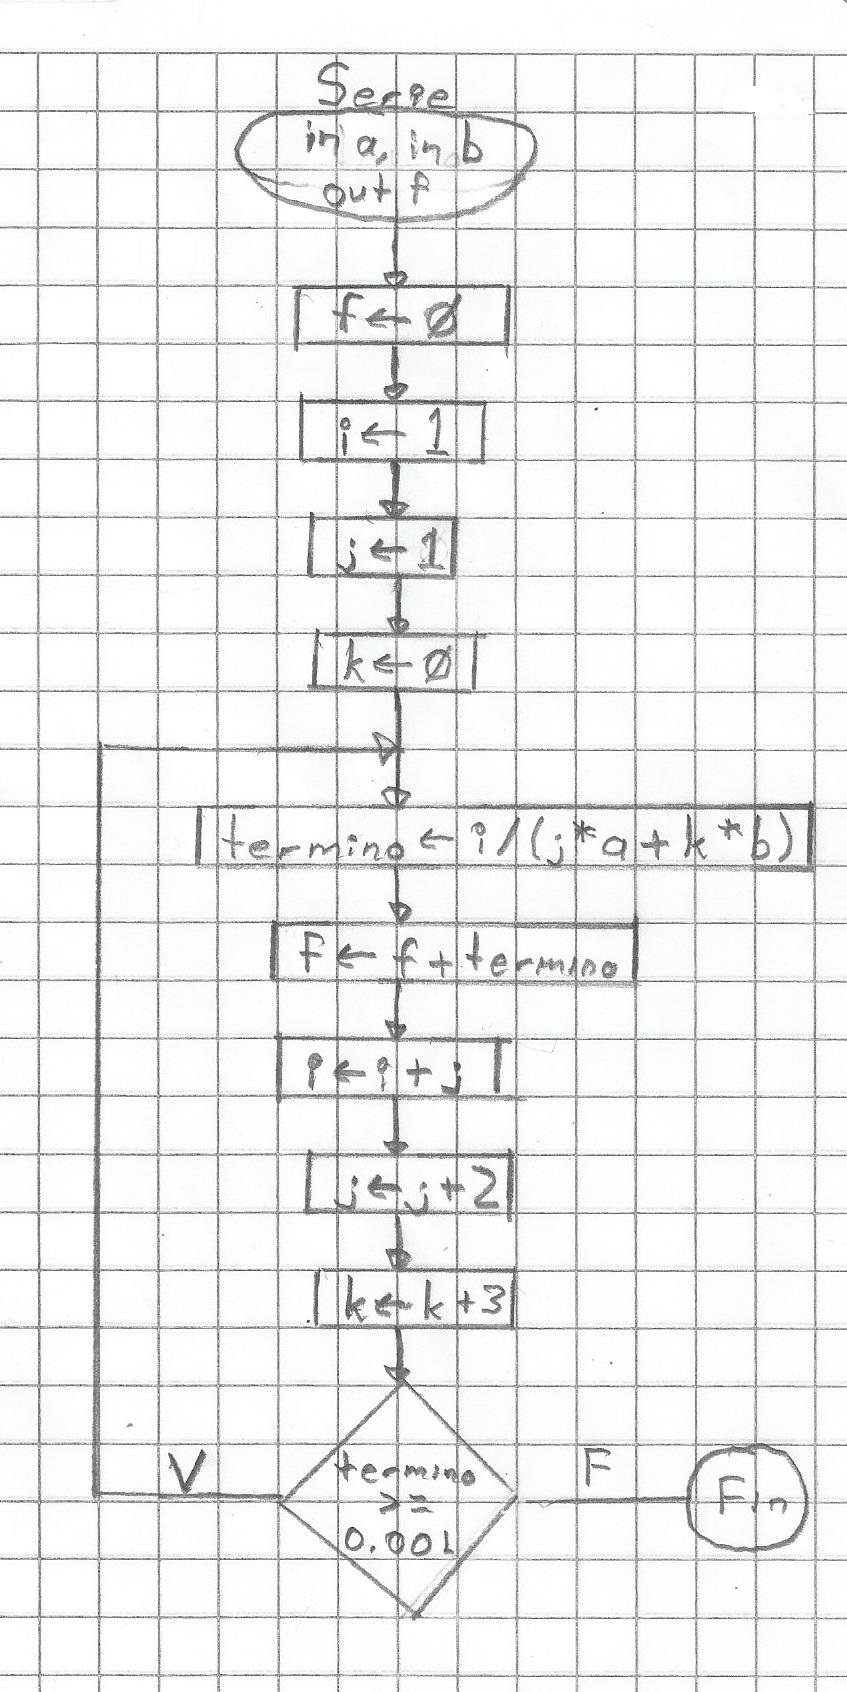 Serie
in a, in b
out f
f ← Ø
i ← 1
j ← 1
k ← Ø
termino ← i/(j*a+k*b)
f ← f + termino
i ← i + j
j ← j+2
k ← k+3
termino
>=
0.001
V
F
Fin